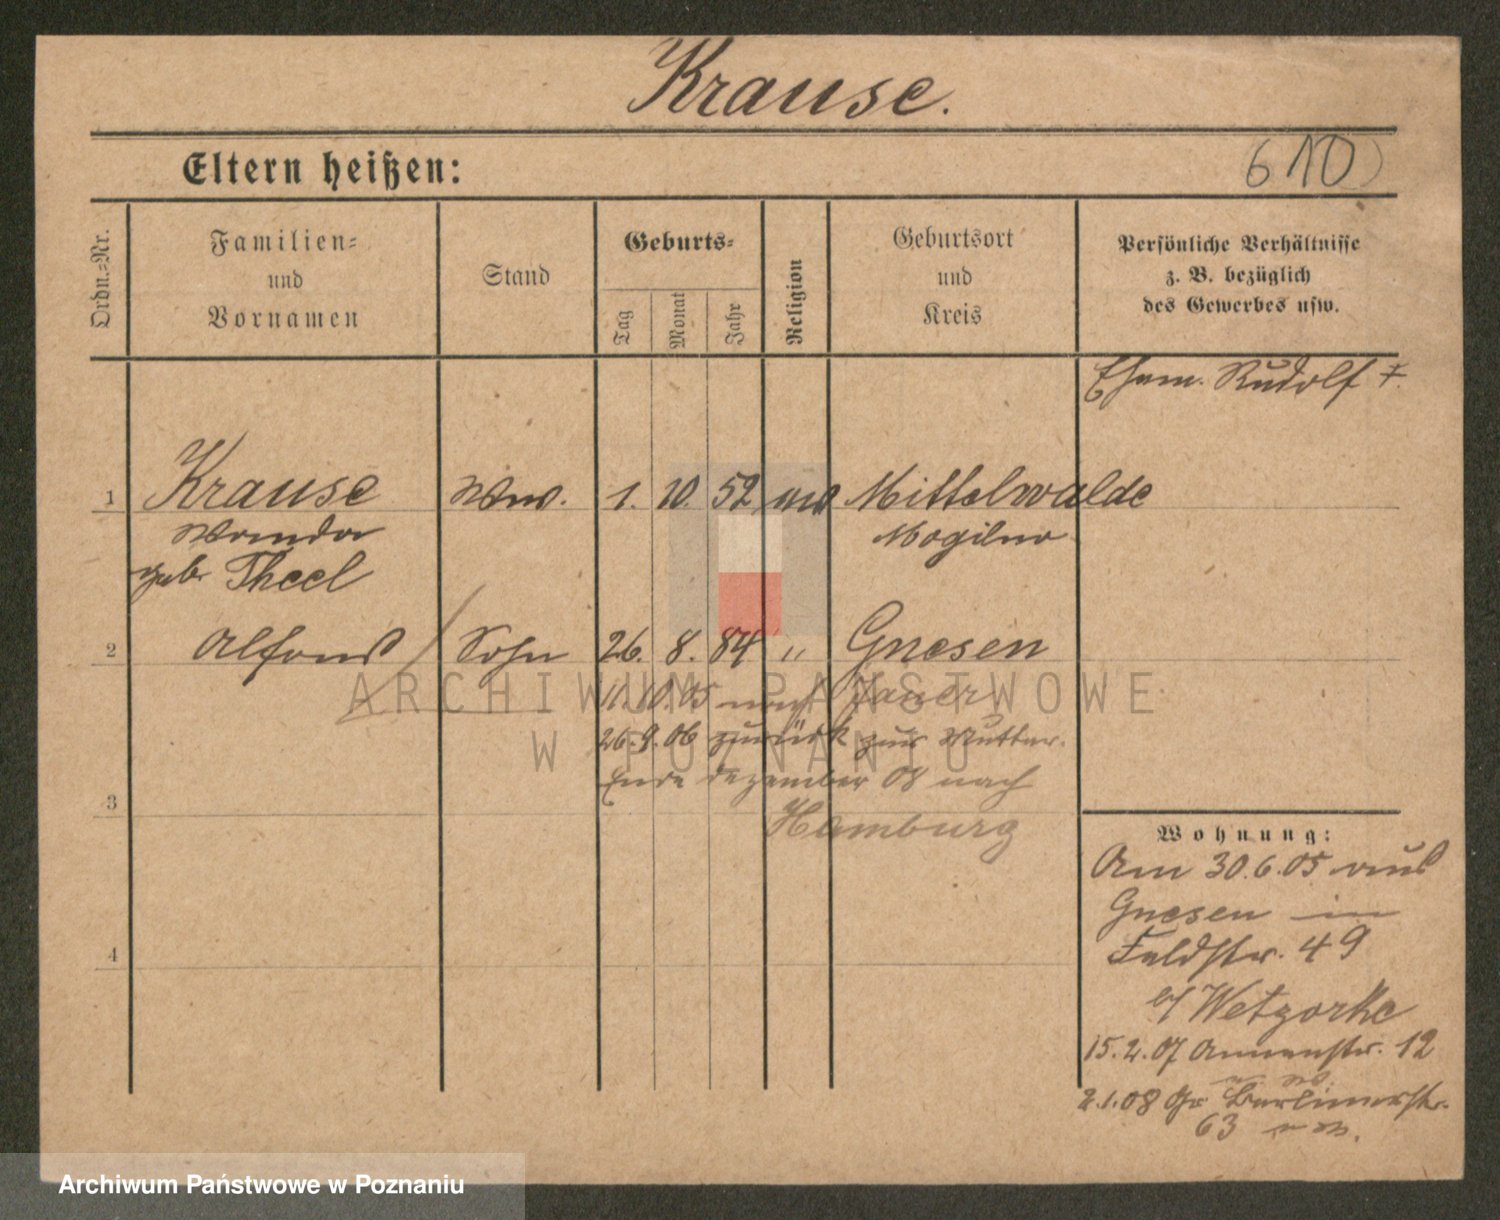 Krause.
Eltern heißen:
610
Ordn.-Nr.
Familien-
und
Vornamen
Stand
Geburts-
Tag
Monat
Jahr
Religion
Geburtsort
und
Kreis
Persönliche Verhältnisse
z. B. bezüglich
des Gewerbes usw.
Ehem. Rudolf
1 Krause Ww. 1. 10. 52 Mittelwalde
Wanda Mogilno
geb. Theel
2 Alfons Sohn 26. 8. 84 " Gnesen
11.10.05 nach Jauer
26.9.06 zurück zur Mutter.
Ende Dezember 08 nach
3
Hamburg
Wohnung:
Am 30.6.05 aus
Gnesen in
Feldstr. 49
b/ Wetzorke
4
15.2.07 Annenstr. 12
2.1.08 Gr Berlinerstr.
63
ARCHIWUM PAŃSTWOWE
W POZNANIU
Archiwum Państwowe w Poznaniu